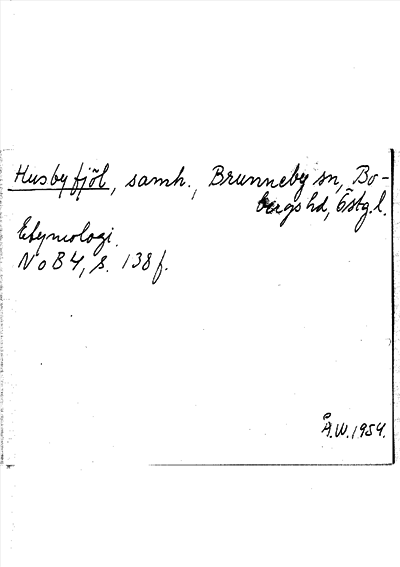 Husbyfjöl, samh., Brunneby sn, Bo-
bergs hd, Östg.l.
Etymologi.
NoB 4, s. 138 f.
Å.W. 1954.